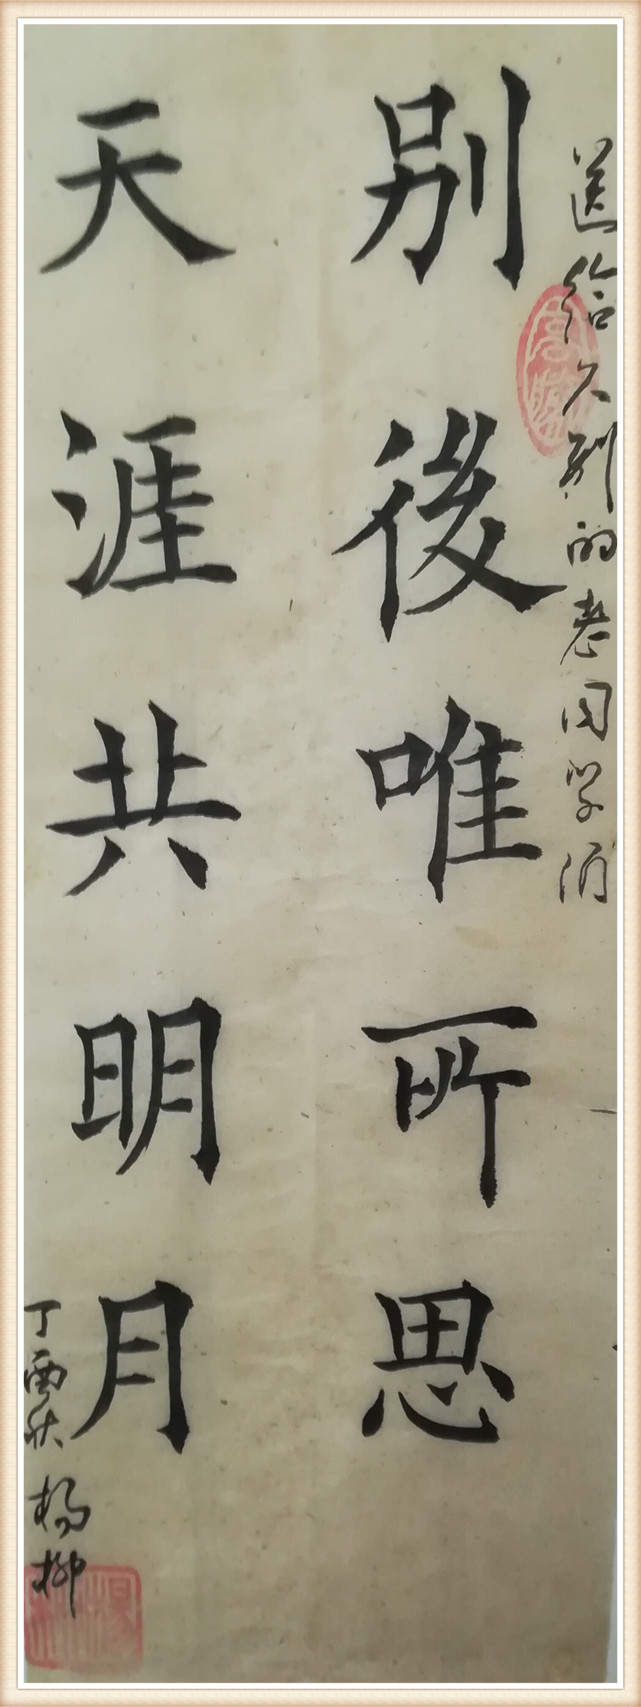 送给久别的老同学们
別後唯所思
天涯共明月
丁酉秋 杨柳